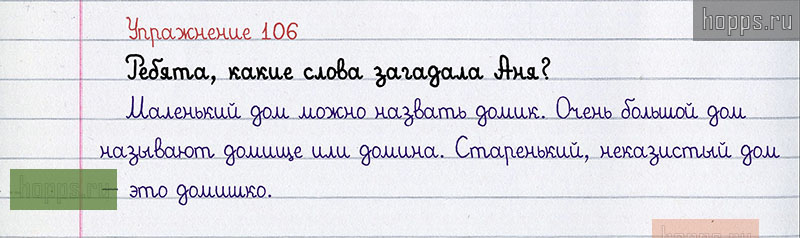 hopps.ru
Упражнение 106
Ребята, какие слова загадала Аня?
Маленький дом можно назвать домик. Очень большой дом
называют домище или домина. Старенький, неказистый дом
hopps.ru — это домишко.
hopps.ru